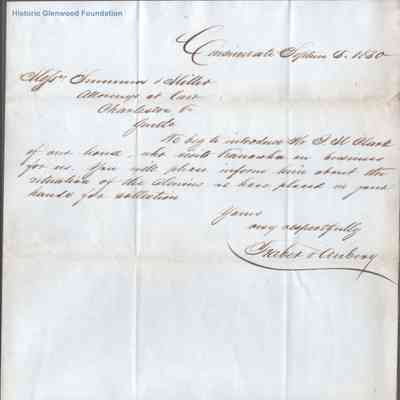 Historic Glenwood Foundation
Cincinnati Septem 5. 1850
Messrs Summers & Miller
Attorneys at Law
Charleston Va
Gentls
We beg to introduce Mr J. M. Clark
of our house, who visits Kanawha on business
for us. You will please inform him about the
situation of the claims we have placed in your
hands for collection
Yours
very respectfully
Traber & Aubery